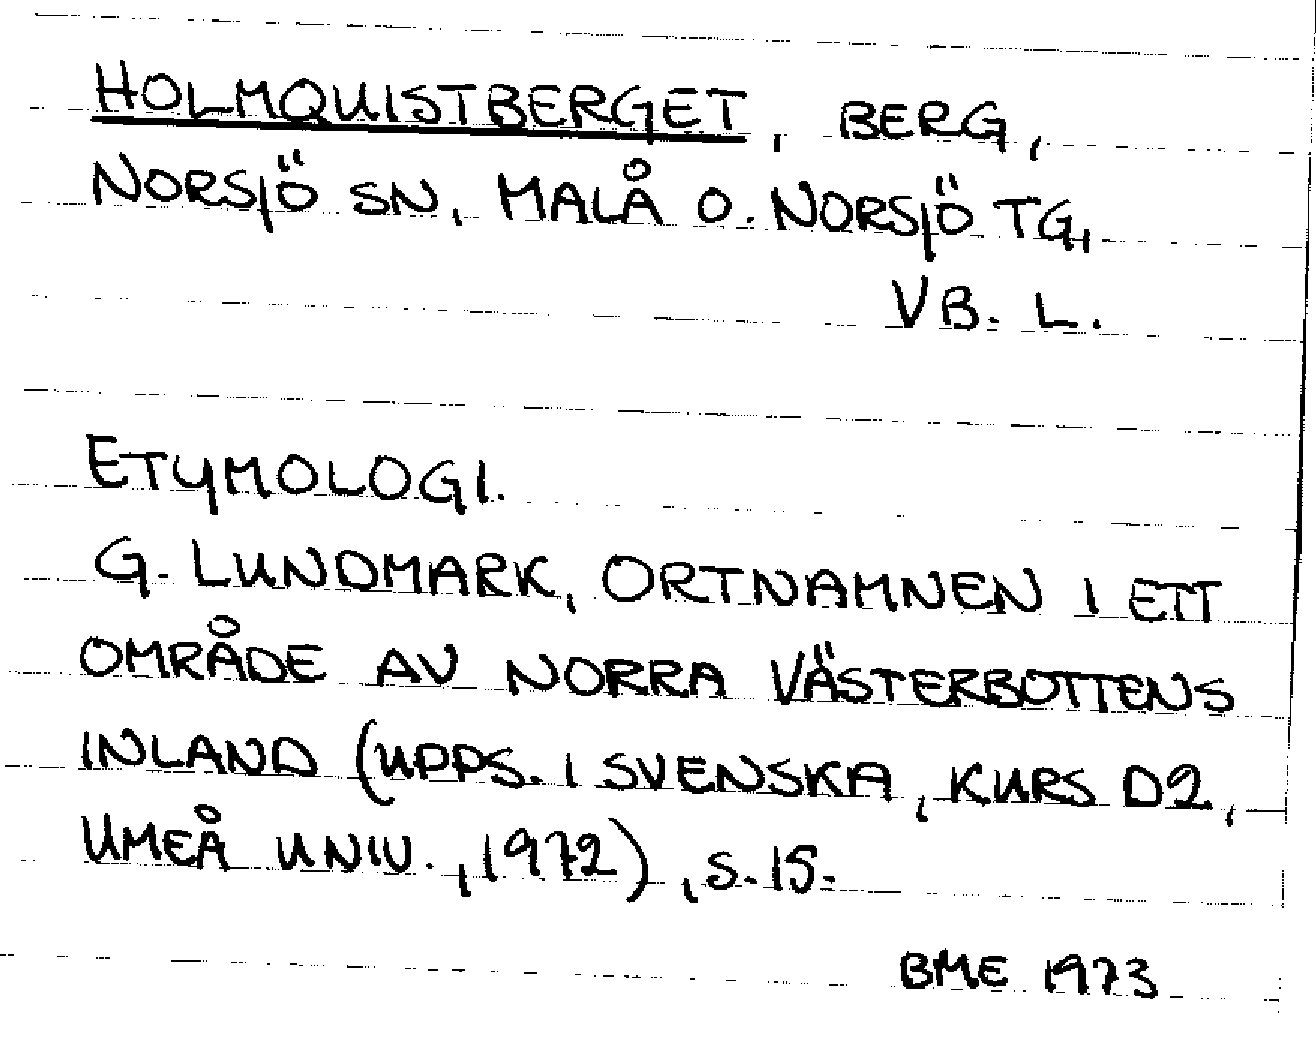 HOLMQUISTBERGET, BERG,
NORSJÖ SN, MALÅ O. NORSJÖ TG,
VB. L.
ETYMOLOGI.
G. LUNDMARK, ORTNAMNEN I ETT
OMRÅDE AV NORRA VÄSTERBOTTENS
INLAND (UPPS. I SVENSKA, KURS D2,
UMEÅ UNIV., 1972), S. 15.
BME 1973